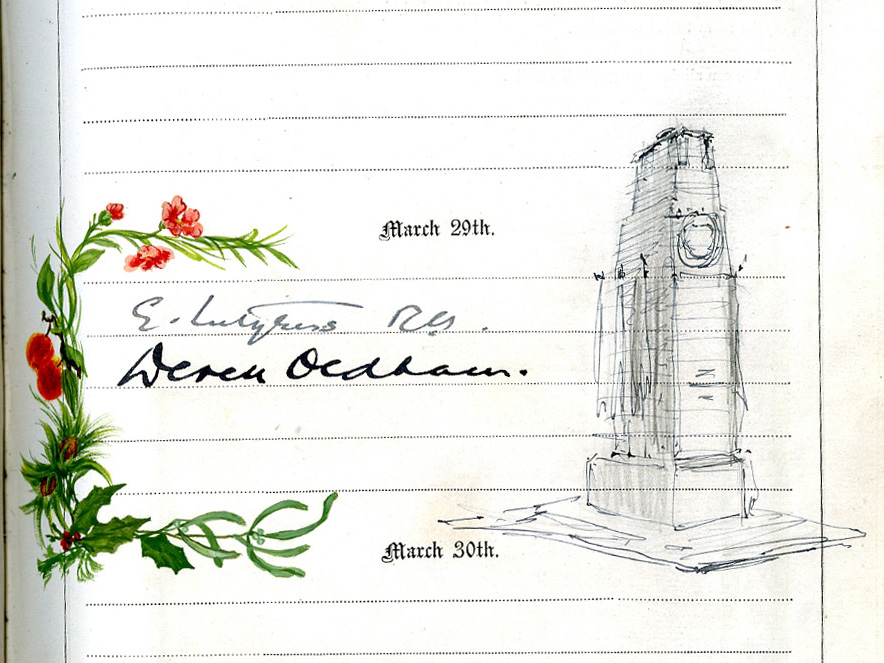 March 29th.
E. Lutyens RA.
Derek Oldham.
March 30th.